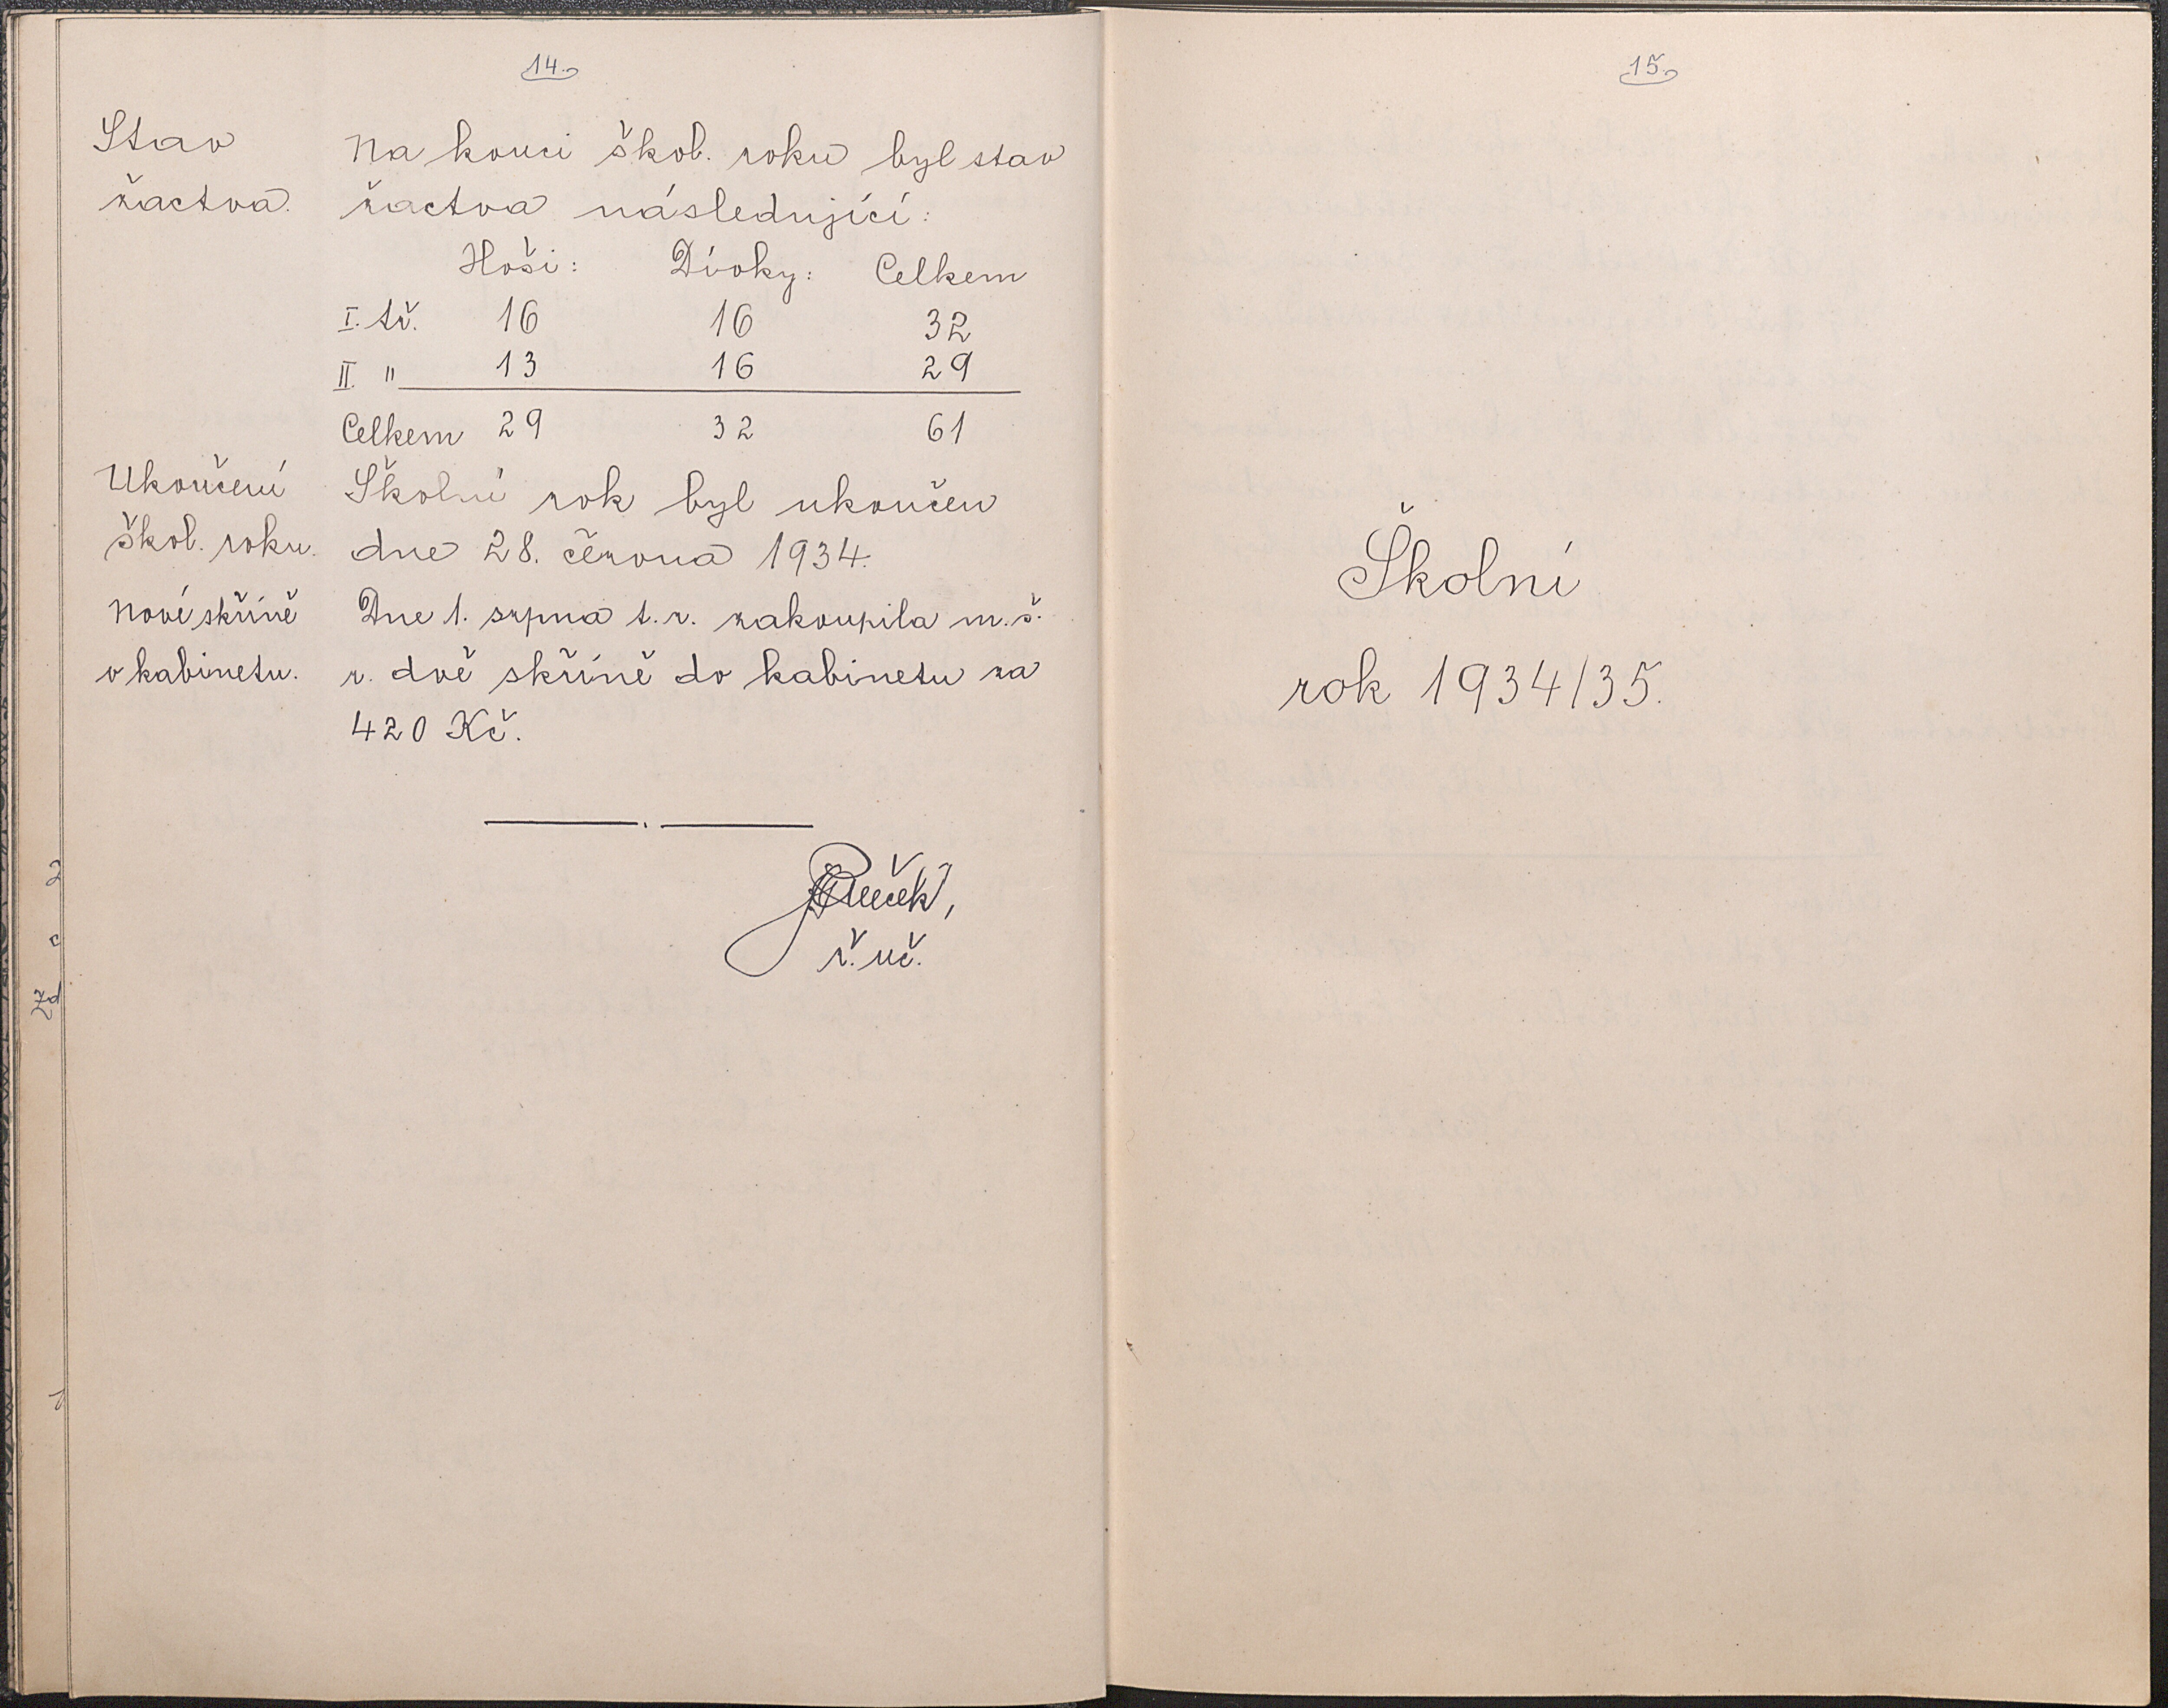 14.
Stav
žactva.
Na konci škol. roku byl stav
žactva následující:
Hoši: Dívky: Celkem
I. tř. 16 16 32
II. " 13 16 29
Celkem 29 32 61
Ukončení
škol. roku.
Školní rok byl ukončen
dne 28. června 1934.
Nové skříně
v kabinetu.
Dne 1. srpna t. r. zakoupila m. š.
r. dvě skříně do kabinetu za
420 Kč.
ř. uč.
15.
Školní
rok 1934/35.